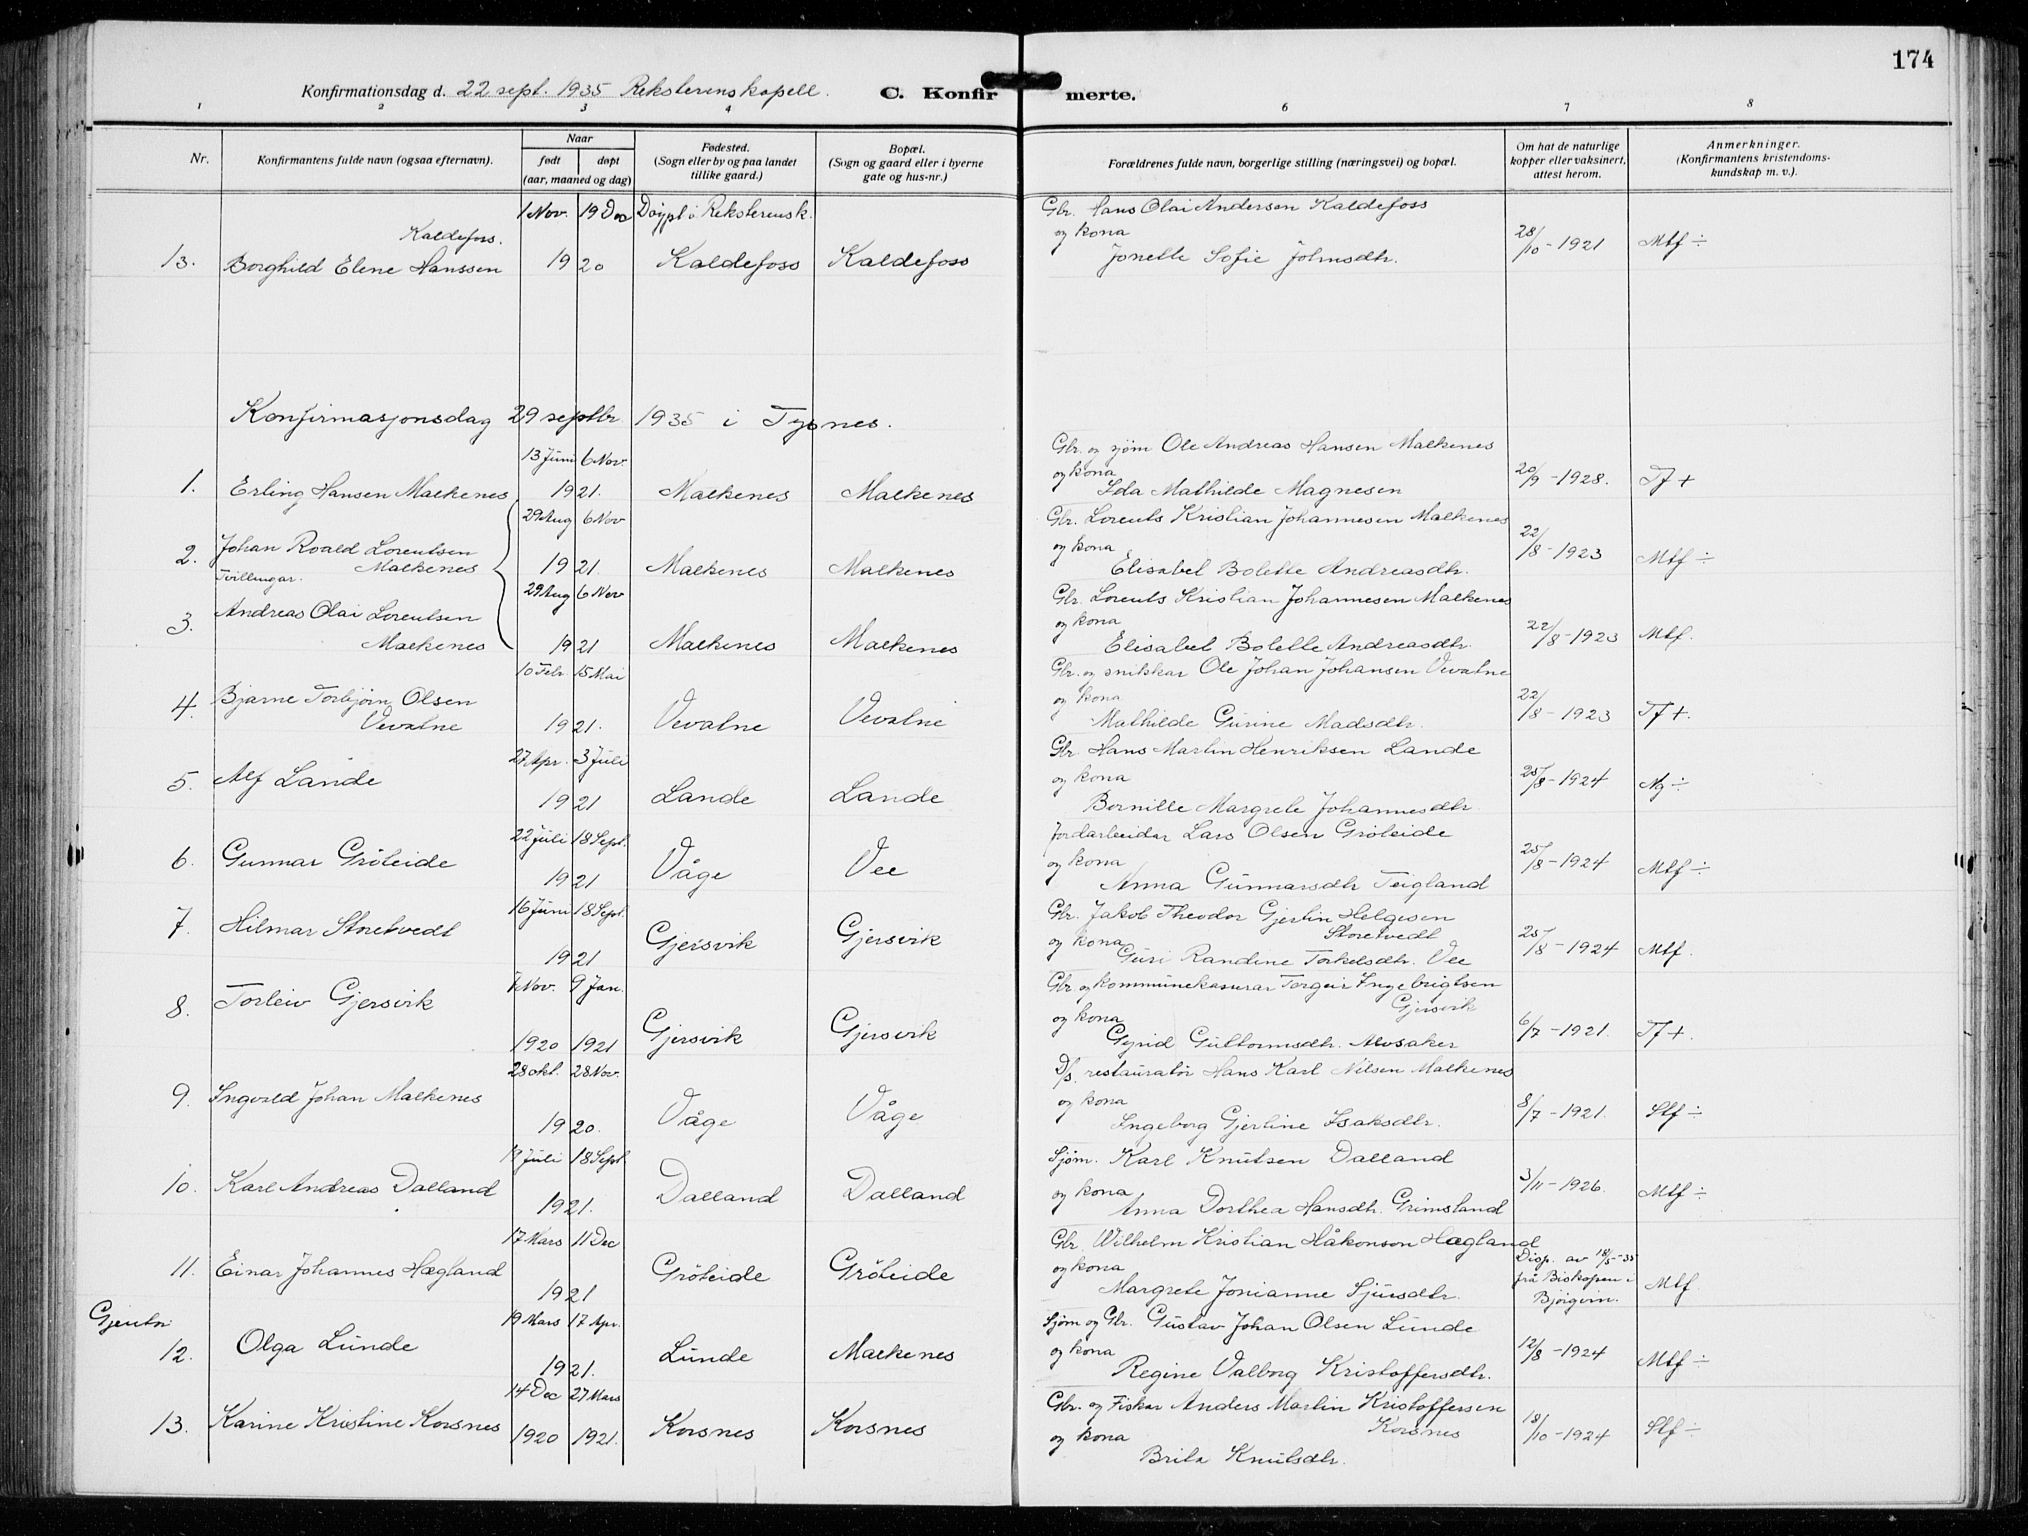 174
Konfirmationsdag d. 22 sept. 1935 Reksterenskapell. C. Konfirmerte.
1 2 3 4 5 6 7 8
Nr. Konfirmantens fulde navn (ogsaa efternavn). Naar født døpt (aar, maaned og dag) Fødested. (Sogn eller by og paa landet tillike gaard.) Bopæl. (Sogn og gaard eller i byerne gate og hus-nr.) Forældrenes fulde navn, borgerlige stilling (næringsvei) og bopæl. Om hat de naturlige kopper eller vaksinert, attest herom. Anmerkninger. (Konfirmantens kristendoms-kundskap m. v.).
1 Nov. 19 Dec Døypt i Reksterensk. Gbr. Hans Olai Andersen Kaldefoss
Kaldefoss. og kona 28/10-1921 Mtf ÷
13. Borghild Elene Hanssen 1920 Kaldefoss Kaldefoss Jonette Sofie Johnsdtr.
Konfirmasjonsdag 29 septbr 1935 i Tysnes.
13 Juni 6 Nov. Gbr. og sjøm Ole Andreas Hansen Malkenes
1. Erling Hansen Malkenes 1921. Malkenes Malkenes og kona 20/9-1928. Tf +
Ida Mathilde Magnesen
29 Aug 6 Nov Gbr. Lorents Kristian Johannesen Malkenes
2. Johan Roald Lorentsen og kona 22/8-1923 Mtf ÷
Tvillingar. Malkenes 1921. Malkenes Malkenes Elisabet Bolette Andreasdtr.
29 Aug 6 Nov Gbr. Lorents Kristian Johannesen Malkenes
3. Andreas Olai Lorentsen og kona 22/8-1923 Mtf.
Malkenes 1921 Malkenes Malkenes Elisabet Bolette Andreasdtr.
10 Febr. 15 Mai Gbr. og snikkar Ole Johan Johansen Vevatne
4. Bjarne Torbjørn Olsen og kona 22/8-1923 Tf +.
Vevatne 1921. Vevatne Vevatne Mathilde Gurine Madsdtr.
27 Apr. 3 Juli Gbr. Hans Martin Henriksen Lande
5. Alf Lande og kona 25/8-1924 Ng ÷
1921 Lande Lande Bernille Margrete Johannesdtr.
22 Juli 18 Sept. Jordarbeidar Lars Olsen Gröteide
6. Gunnar Gröteide og kona 25/8-1924 Mtf ÷
1921 Våge Vee Anna Gunnarsdtr Teigland
16 Juni 18 Sept. Gbr. Jakob Theodor Gjertin Helgesen
7. Hilmar Storetvedt Storetvedt
1921 Gjersvik Gjersvik og kona 25/8-1924 Mtf.
Guri Randine Torkelsdtr. Vee
7 Nov. 9 Jan. Gbr og kommunekaserar Torgeir Ingebrigtsen
8. Torleiv Gjersvik Gjersvik
1920 1921 Gjersvik Gjersvik og kona 6/7-1921. Tf +.
Gyrid Guttormsdtr. Alvsaker
28 okt. 28 Nov. D/s. restauratør Hans Karl Nilsen Malkenes
9. Ingvald Johan Malkenes og kona 8/7-1921. Stf ÷
1920. Våge Våge Ingeborg Gjertine Isaksdtr.
19 Juli 18 Sept. Sjøm. Karl Knutsen Dalland
10. Karl Andreas Dalland og kona 3/11-1926. Mtf ÷
1921. Dalland Dalland Anna Dorthea Hansdtr. Grimsland
17 Mars 11 Dec Gbr. Wilhelm Kristian Håkonson Hægland
11. Einar Johannes Hægland og kona Disp. av 18/5-35 frå Biskopen i Bjørgvin. Mtf.
1921 Gröteide Gröteide Margrete Jonianne Sjursdtr.
Gjentor 19 Mars 17 Apr. Sjøm og Gbr. Gustav Johan Olsen Lunde
12. Olga Lunde og kona 12/8-1924 Mtf ÷
1921. Lunde Malkenes Regine Valborg Kristoffersdtr.
14 Dec 27 Mars Gbr. og Fiskar Anders Martin Kristoffersen
13. Karine Kristine Korsnes Korsnes
1920 1921. Korsnes Korsnes og kona 18/10-1924 Stf ÷
Brita Knutsdtr.